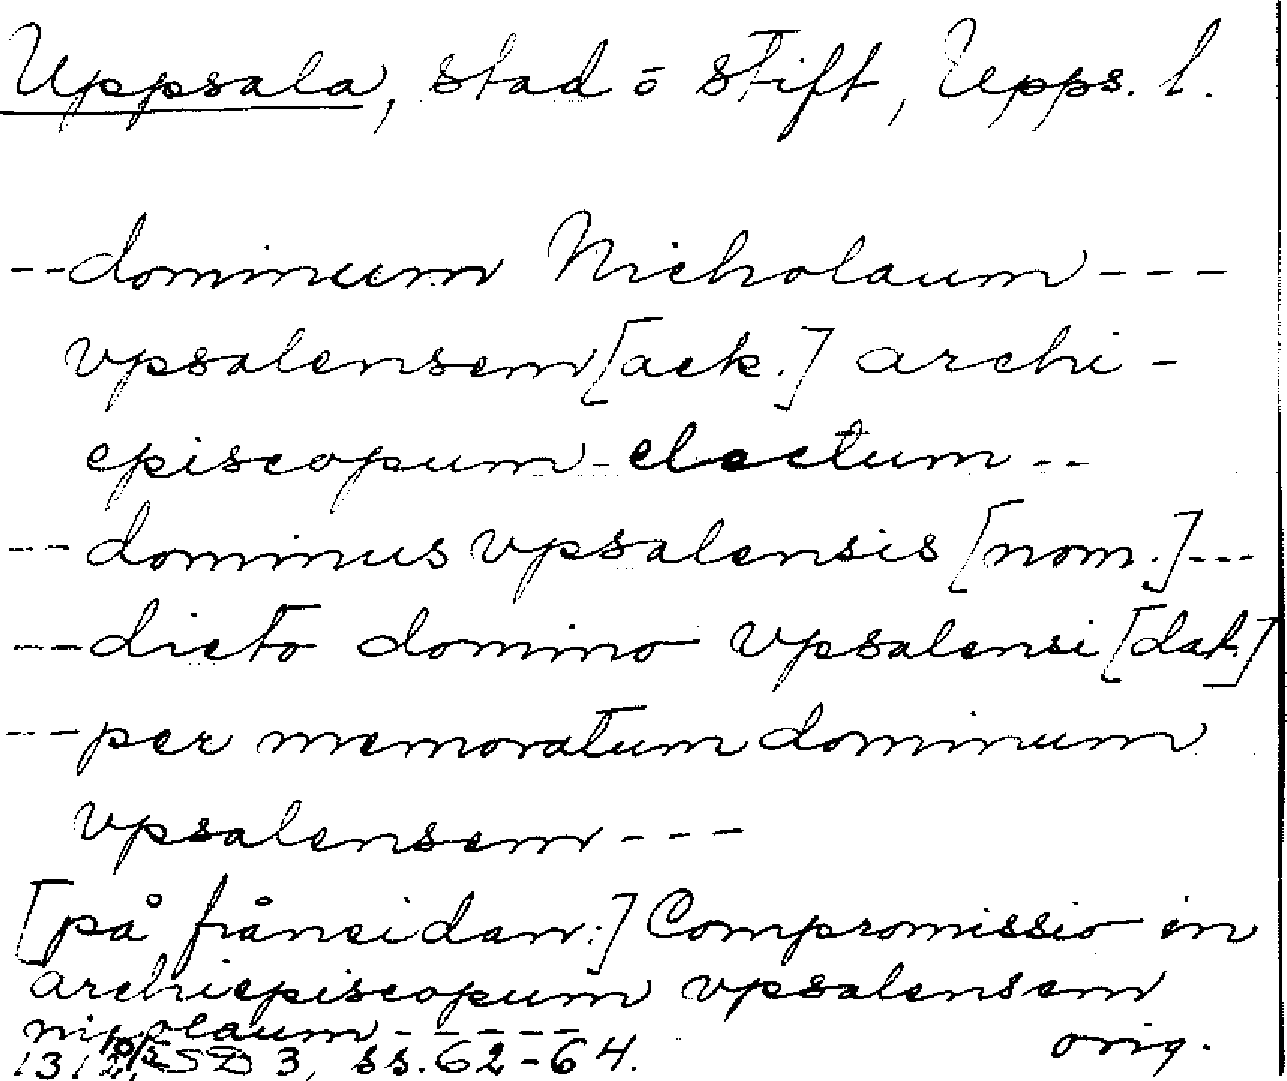 Uppsala, stad o stift, Upps. l.
-- dominum Nicholaum ---
vpsalensem [ack.] archi-
episcopum electum --
-- dominus vpsalensis [nom.] ---
--- dicto domino vpsalensi [dat.]
--- per memoratum dominum
vpsalensem ---
[på frånsidan:] Compromissio in
archiepiscopum vpsalensem
nicolaum ------ orig.
SD 3, ss. 62-64.